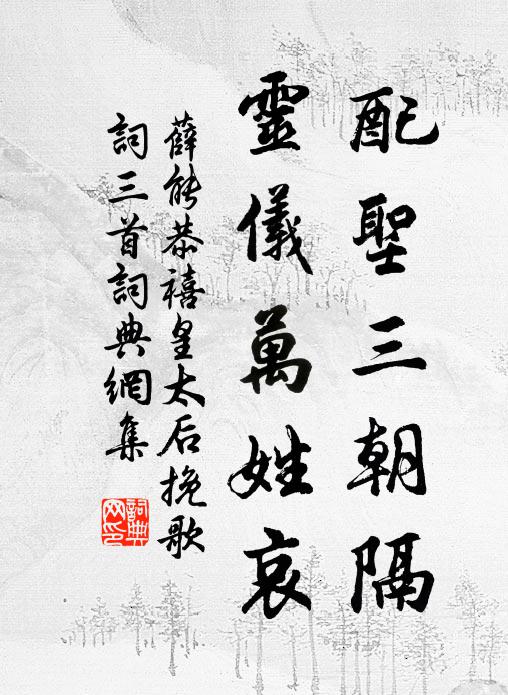 配聖三朝隔
靈儀萬姓哀
薛能恭禧皇太后挽歌
詞三首詞典網集
詞典
网印